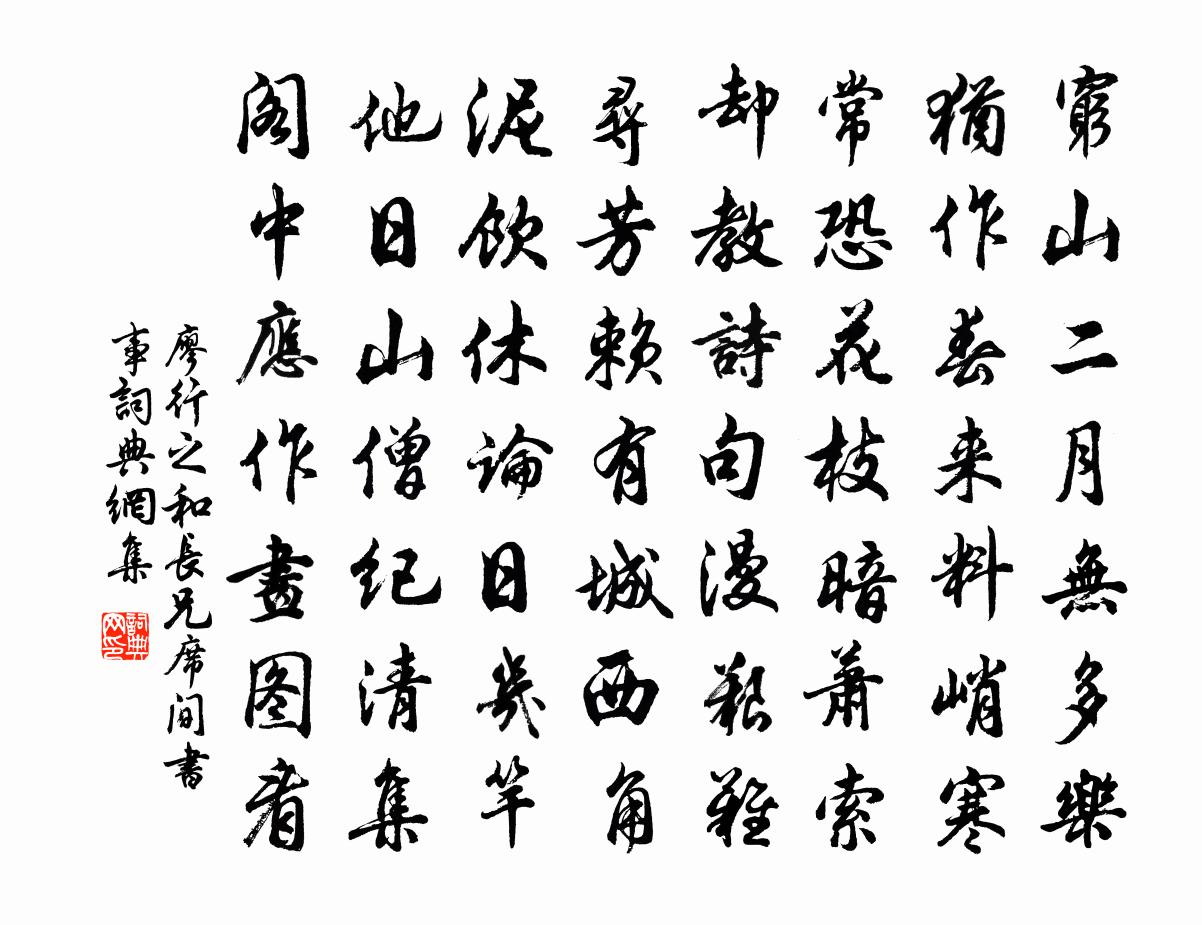 窮山二月無多樂
猶作春来料峭寒
常恐花枝暗蕭索
却教詩句漫艱難
尋芳賴有城西角
泥飲休論日幾竿
他日山僧紀清集
閣中應作畫图看
廖行之和長兄席间書
事詞典網集
詞典网印